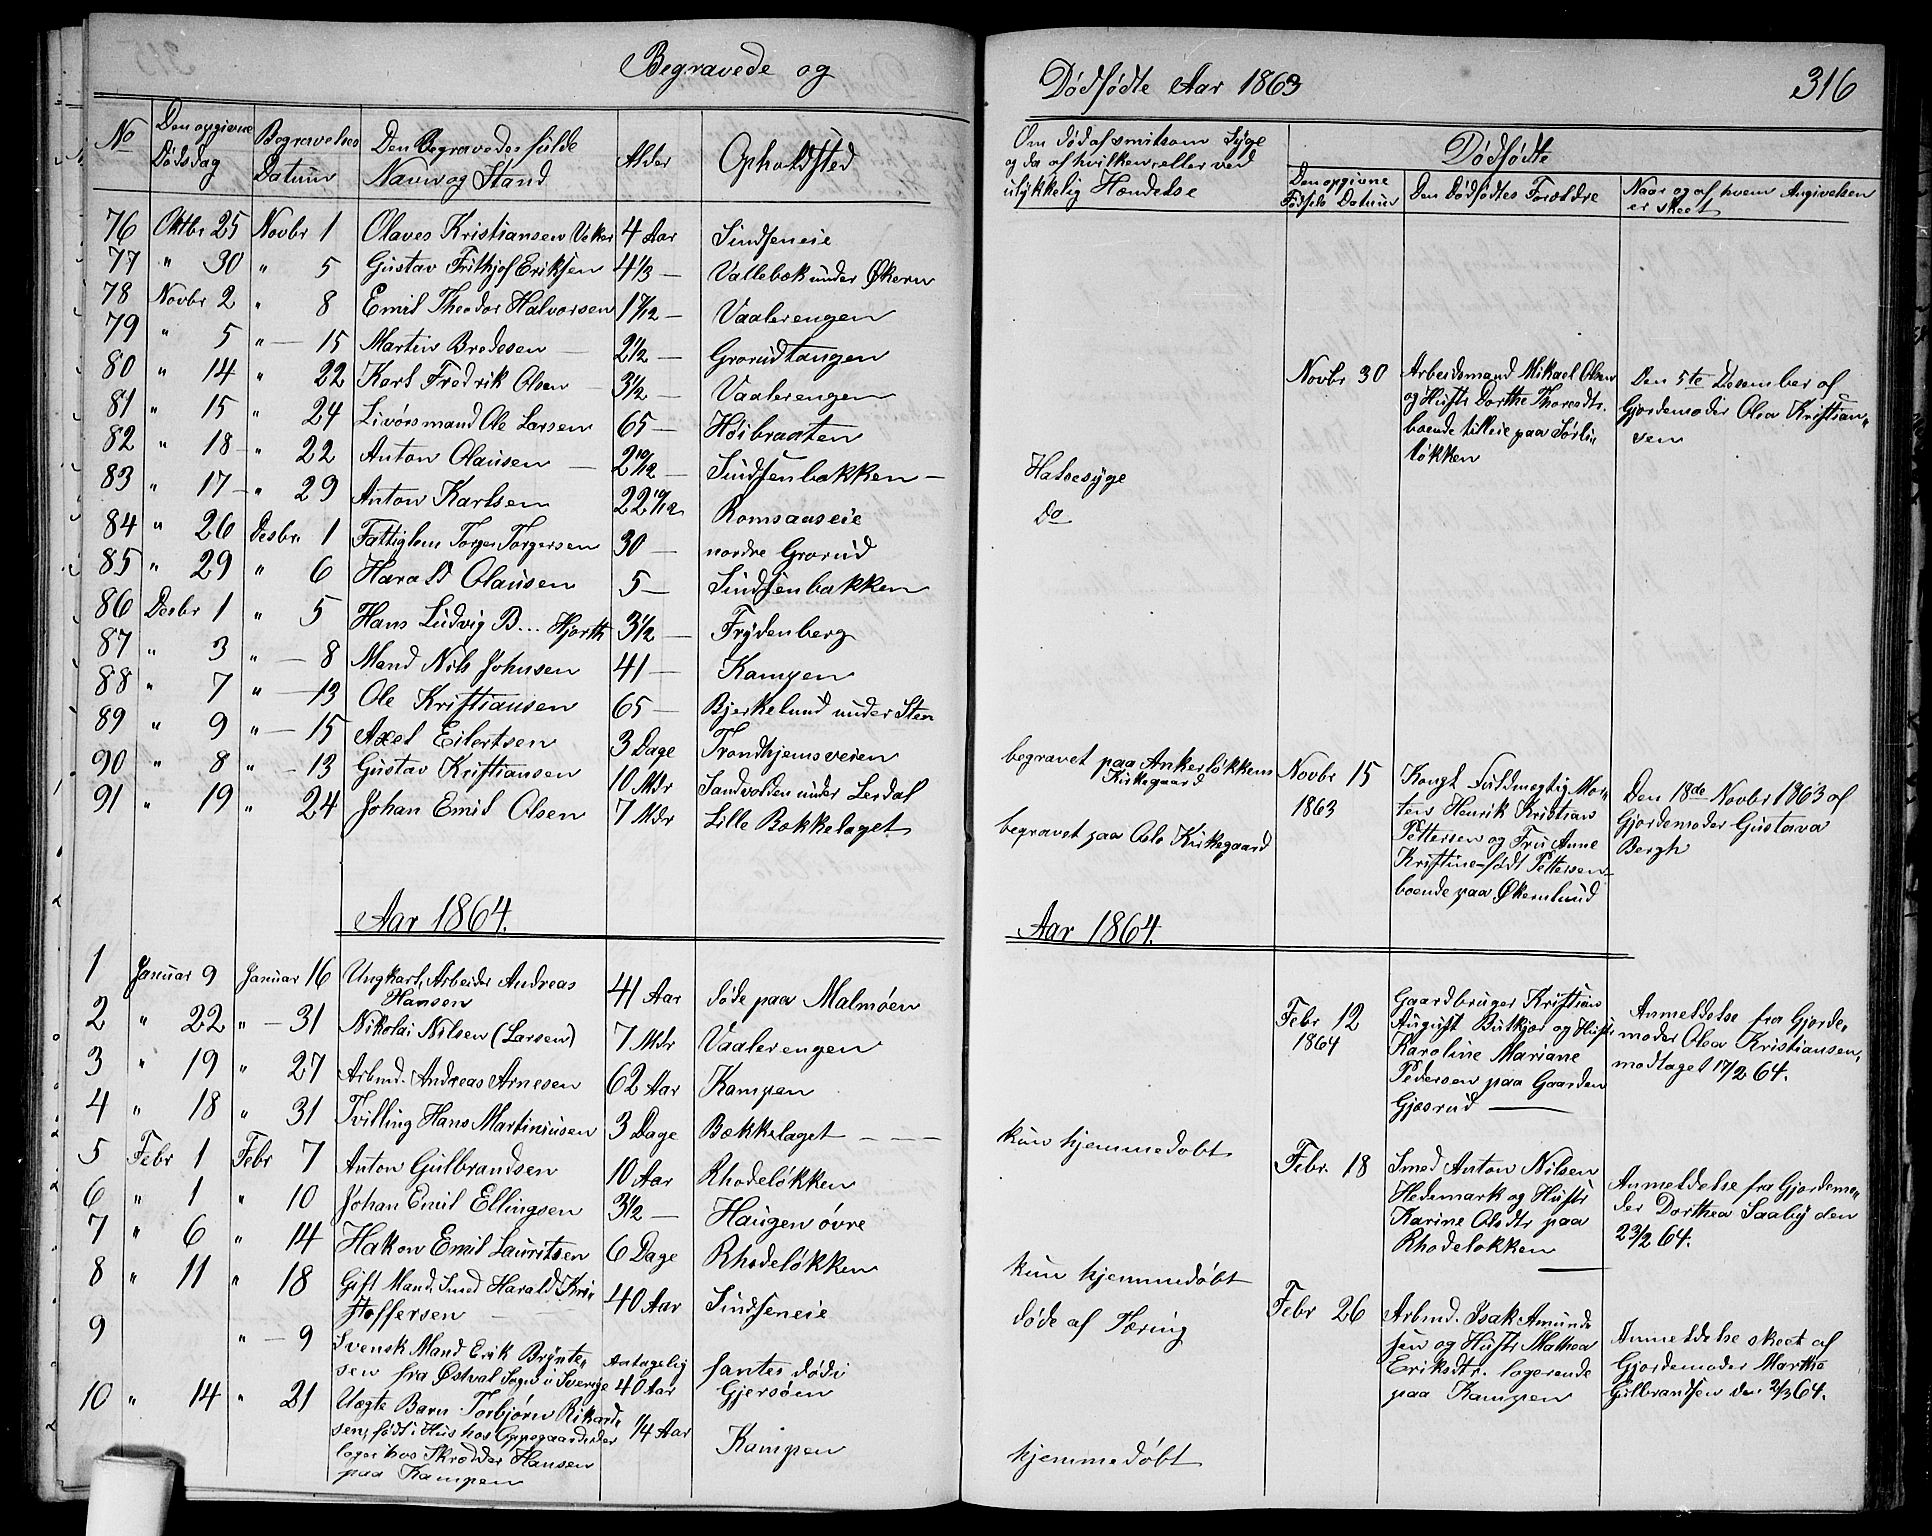 Begravede og
No
Den opgivne Dødsdag
Begravelses Datum
Den Begravedes fulde Navn og Stand
Alder
Opholdsted
76 Oktbr 25 Novbr 1 Olaves Kristiansen Veker 4 Aar Sindseneie
77 " 30 " 5 Gustav Frithjof Eriksen 4 1/3 — Vallebæk under Økern
78 Novbr 2 " 8 Emil Theodor Halvorsen Vaalerengen
79 " 5 " — 15 Martin Bredesen — 2 1/2 — Grorudtangen
80 " 14 " 22 Karl Fredrik Olsen — 3 1/2 — Vaalerengen
81 " 15 " 24 Livørsmand Ole Larsen 65 — Høibraaten
82 " 18 — " 22 Anton Olausen — 2 10/12 — Sindsenbakken —
83 " 17 — " 29 Anton Karlsen 22 10/12 Romsaaseie
84 " 26 Desbr. 1 Fattiglem Torger Torgersen 30 — nordre Grorud
85 " 29 " 6 Harald Olausen 5 — Sindsenbakken
86 Desbr 1 " 5 Hans Ludvig B... Hjorth 3 1/2 — Frydenberg
87 " 3 " — 8 Mand Nils Johnsen 41 — Kampen
88 " 7 " — 13 Ole Kristiansen 65 — Bjerkelund under Sten
89 " 9 " — 15 Axel Eilertsen 3 Dage Trondhjemsveien
90 " 8 " — 13 Gustav Kristiansen 10 Mdr Sandvolden under Lerdal
91 " 19 " 24 Johan Emil Olsen 7 Mdr Lille Bækkelaget
Aar 1864.
1 Januar 9 Januar 16 Ungkarl, Arbeider Andreas
Hansen 41 Aar døde paa Malmøen
2 " 22 " — 31 Nikolai Nilsen (Larsen) 7 Mdr Vaalerengen
3 " 19 " 27 Arbmd. Andreas Arnesen 62 Aar Kampen
4 " 18 " 31 Tvilling Hans Martiniusen 3 Dage Bækkelaget — — —
5 Febr 1 Febr 7 Anton Gulbrandsen 10 Aar Rhodeløkken
6 " 1 " 10 Johan Emil Ellingsen 3 1/2 — Haugen øvre
7 " 6 " 14 Hakon Emil Lauritsen 6 Dage Rhodeløkken
8 " 11 " 18 Gift Mand, Smed Harald Kri-
stoffersen — 40 Aar Sindseneie
9 " — 9 Svensk Mand Erik Brynte-
sen fra Østval Sogn i Sverige Antagelig 40 Aar fantes død i Gjersøen
10 " 14 " 21 Uægte Barn Torbjørn Rikard-
sen, født i Hus hos Oppegaard eller
loger hos Skrædder Hansen
paa Kampen 1/4 Aar Kampen
Dødfødte Aar 1863
316
Om død af smitsom Syge
og da af hvilken, eller ved
ulykkelig Hændelse
Dødfødte
Den opgivne Fødsels Datum
Den Dødfødtes Forældre
Naar og af hvem Angivelsen er skeet
Novbr 30
Arbeidsmand Mikael Olsen
og Hustr Dorthe Thoresdtr.
boende tilleie paa Sørli-
løkken
Den 5te Desember af
Gjordemoder Olea Kristian-
sen
Halsesyge
Do
begravet paa Ankerløkkens
Kirkegaard
begravet paa Oslo Kirkegaard
Novbr 15
1863
Kongl. Fuldmegtig Mor-
ten Henrik Kristian
Pettersen og Fru Anne
Kristine født Pettersen
boende paa Økernlund
Den 18de Novbr 1863 af
Gjordemoder Gustava
Bergh
Aar 1864.
Febr 12
1864
Gaardbruger Kristian
August Butkjær og Hustr
Karoline Mariane
Pedersen paa Gaarden
Gjæsrud —
Anmeldelse fra Gjorde-
moder Olea Kristiansen,
modtaget 17/2 64.
kun hjemmedøbt
Febr. 18
Smed Anton Nilsen
Hedemark og Hustr
Karine Olsdtr paa
Rhodeløkken
Anmeldelse fra Gjordemo-
der Dorthea Saaby den
23/2 64.
kun hjemmedøbt
døde af Tæring
Febr 26
Arbmd. Isak Amund-
sen og Hustr Mathea
Eriksdtr. logerende
paa Kampen
Anmeldelse skeet af
Gjordemoder Marthe
Gulbrandsen den 2/3 64.
hjemmedøbt